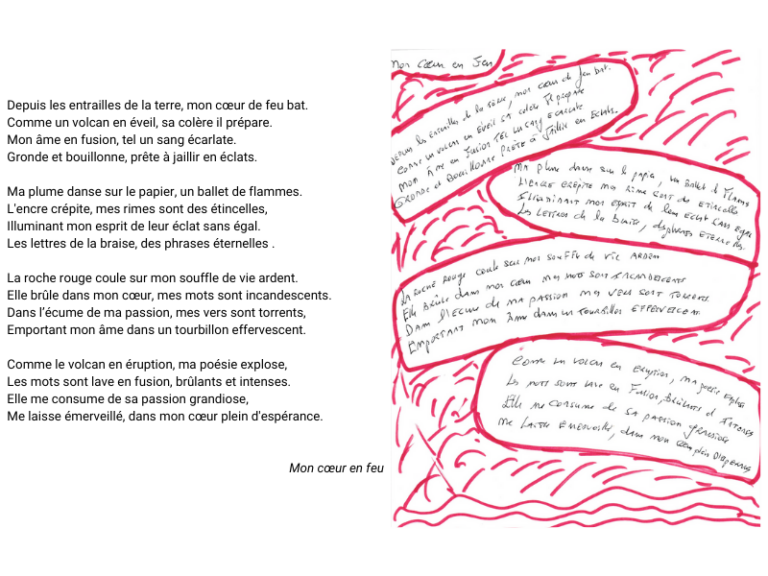 Depuis les entrailles de la terre, mon cœur de feu bat.
Comme un volcan en éveil, sa colère il prépare.
Mon âme en fusion, tel un sang écarlate.
Gronde et bouillonne, prête à jaillir en éclats.
Ma plume danse sur le papier, un ballet de flammes.
L'encre crépite, mes rimes sont des étincelles,
Illuminant mon esprit de leur éclat sans égal.
Les lettres de la braise, des phrases éternelles .
La roche rouge coule sur mon souffle de vie ardent.
Elle brûle dans mon cœur, mes mots sont incandescents.
Dans l'écume de ma passion, mes vers sont torrents,
Emportant mon âme dans un tourbillon effervescent.
Comme le volcan en éruption, ma poésie explose,
Les mots sont lave en fusion, brûlants et intenses.
Elle me consume de sa passion grandiose,
Me laisse émerveillé, dans mon cœur plein d'espérance.
Mon cœur en feu
Mon Cœur en Feu
Depuis les entrailles de la terre, mon cœur de feu bat.
Comme un volcan en éveil sa colère il prépare
Mon Âme en fusion Tel un sang écarlate
Gronde et Bouillonne Prête à Jaillir en Eclats.
Ma plume danse sur le papier, un Ballet de Flammes
L'encre crépite ma rime sont des étincelle
Illuminant mon esprit de leur éclat sans égal
Les Lettres de la Braise, des phrases éternelles.
La roche Rouge coule sur mon souffle de vie ARDEN
Elle Brûle dans mon cœur mes mots sont INCANDESCENTS
Dans l'écume de ma passion mes vers sont Torrents
Emportant mon Âme dans un Tourbillon EFFERVESCENT
Comme un volcan en éruption, ma poésie explose
Les mots sont lave en Fusion, Brûlants et
Elle me consume de SA passion grandiose
Me Laisse Emerveillé, dans mon cœur plein